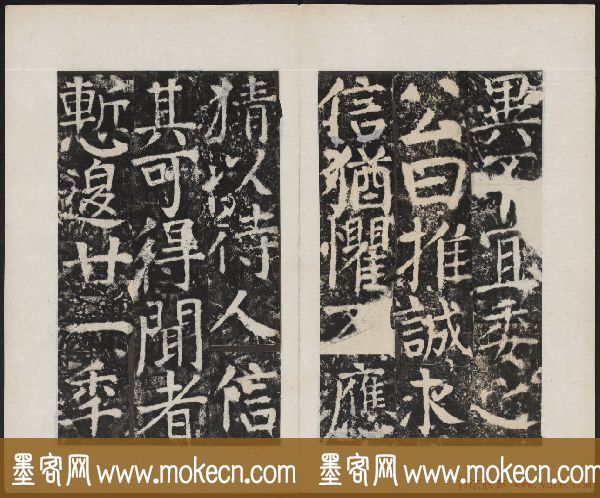 異不宜委之
公曰推誠求
信猶懼不應
猜以待人信
其可得聞者
慙復廿一秊
墨客网 www.mokecn.com 墨客网 www.mokecn.com